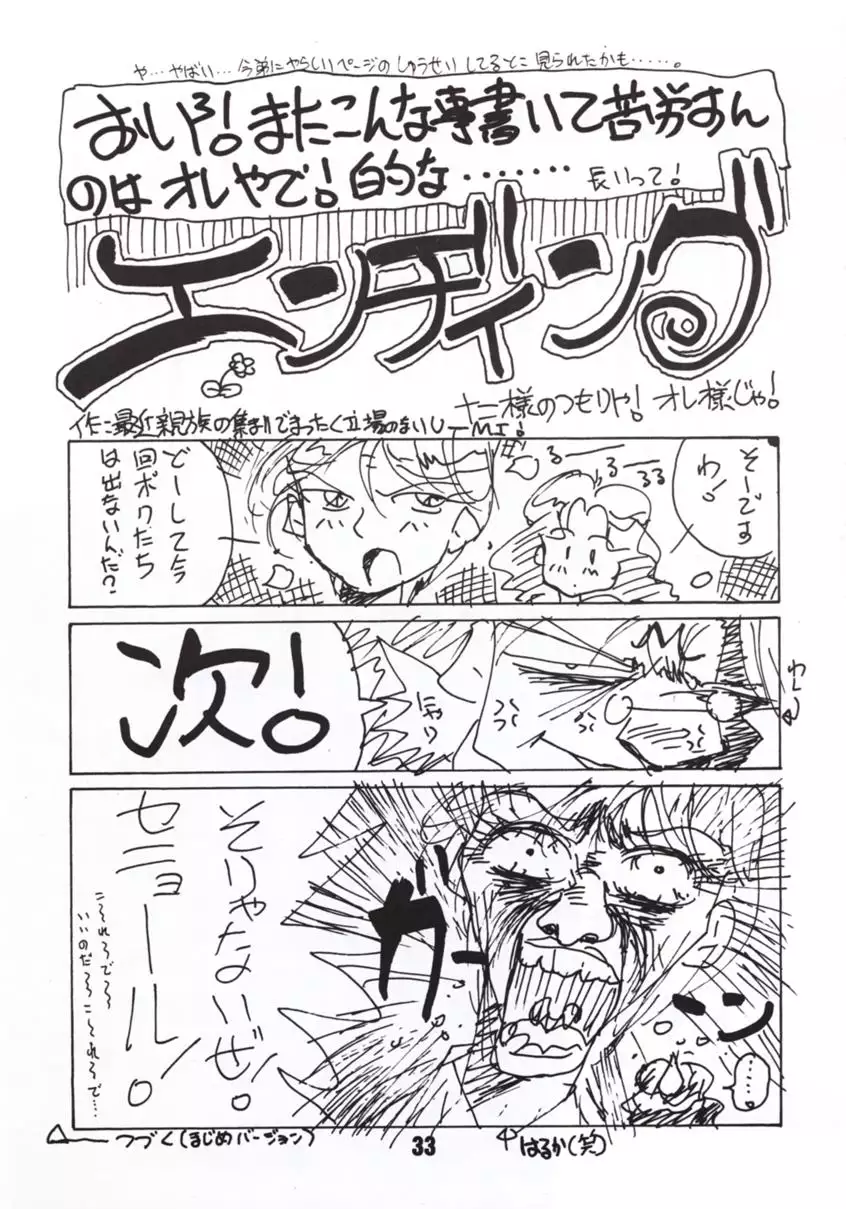 や…やばい…今弟にやらしいページのしゅうせいしてるとこ見られたかも……。
おいろ!またこんな事書いて苦労すん
のはオレやで!的な・・・・・・・長いって!
エンディング
十二様のつもりや!オレ様じゃ!
作:最近親族の集まりでまったく立場のまいU-MI!
そーです
わ!
るーーるーー
るる
どーして今
回ボクたち
は出ないんだ?
次!
にやり
そりゃないぜ!
セニョール!。
こ~れ~ろで~~
いいのだ~ろ~こ~れ~ろで…
ガーー
……
はるか(笑)
つづく(まじめバージョン)
33